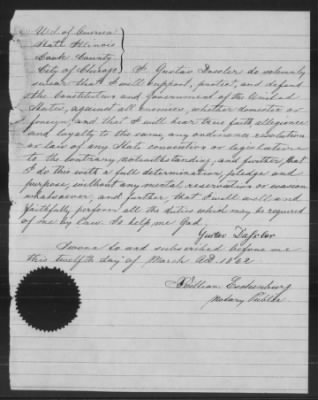 U.S. of America
State Illinois
Cook County
City of Chicago I Gustav Dassler do solemnly
swear that I will support, protect, and defend
the Constitution and Government of the United
States, against all enemies, whether domestic or
foreign and that I will bear true faith, allegiance
and loyalty to the same, any ordinance resolution
or law of any State convention or legislature
to the contrary notwithstanding, and further, that
I do this with a full determination, pledge and
purpose, without any mental reservation or evasion
whatsoever, and further, that I will well and
faithfully perform all the duties which may be required
of me by law. So help me God,
Gustav Dassler
Sworn to and subscribed before me
this twelfth day of March AD. 18
William
Notary Public